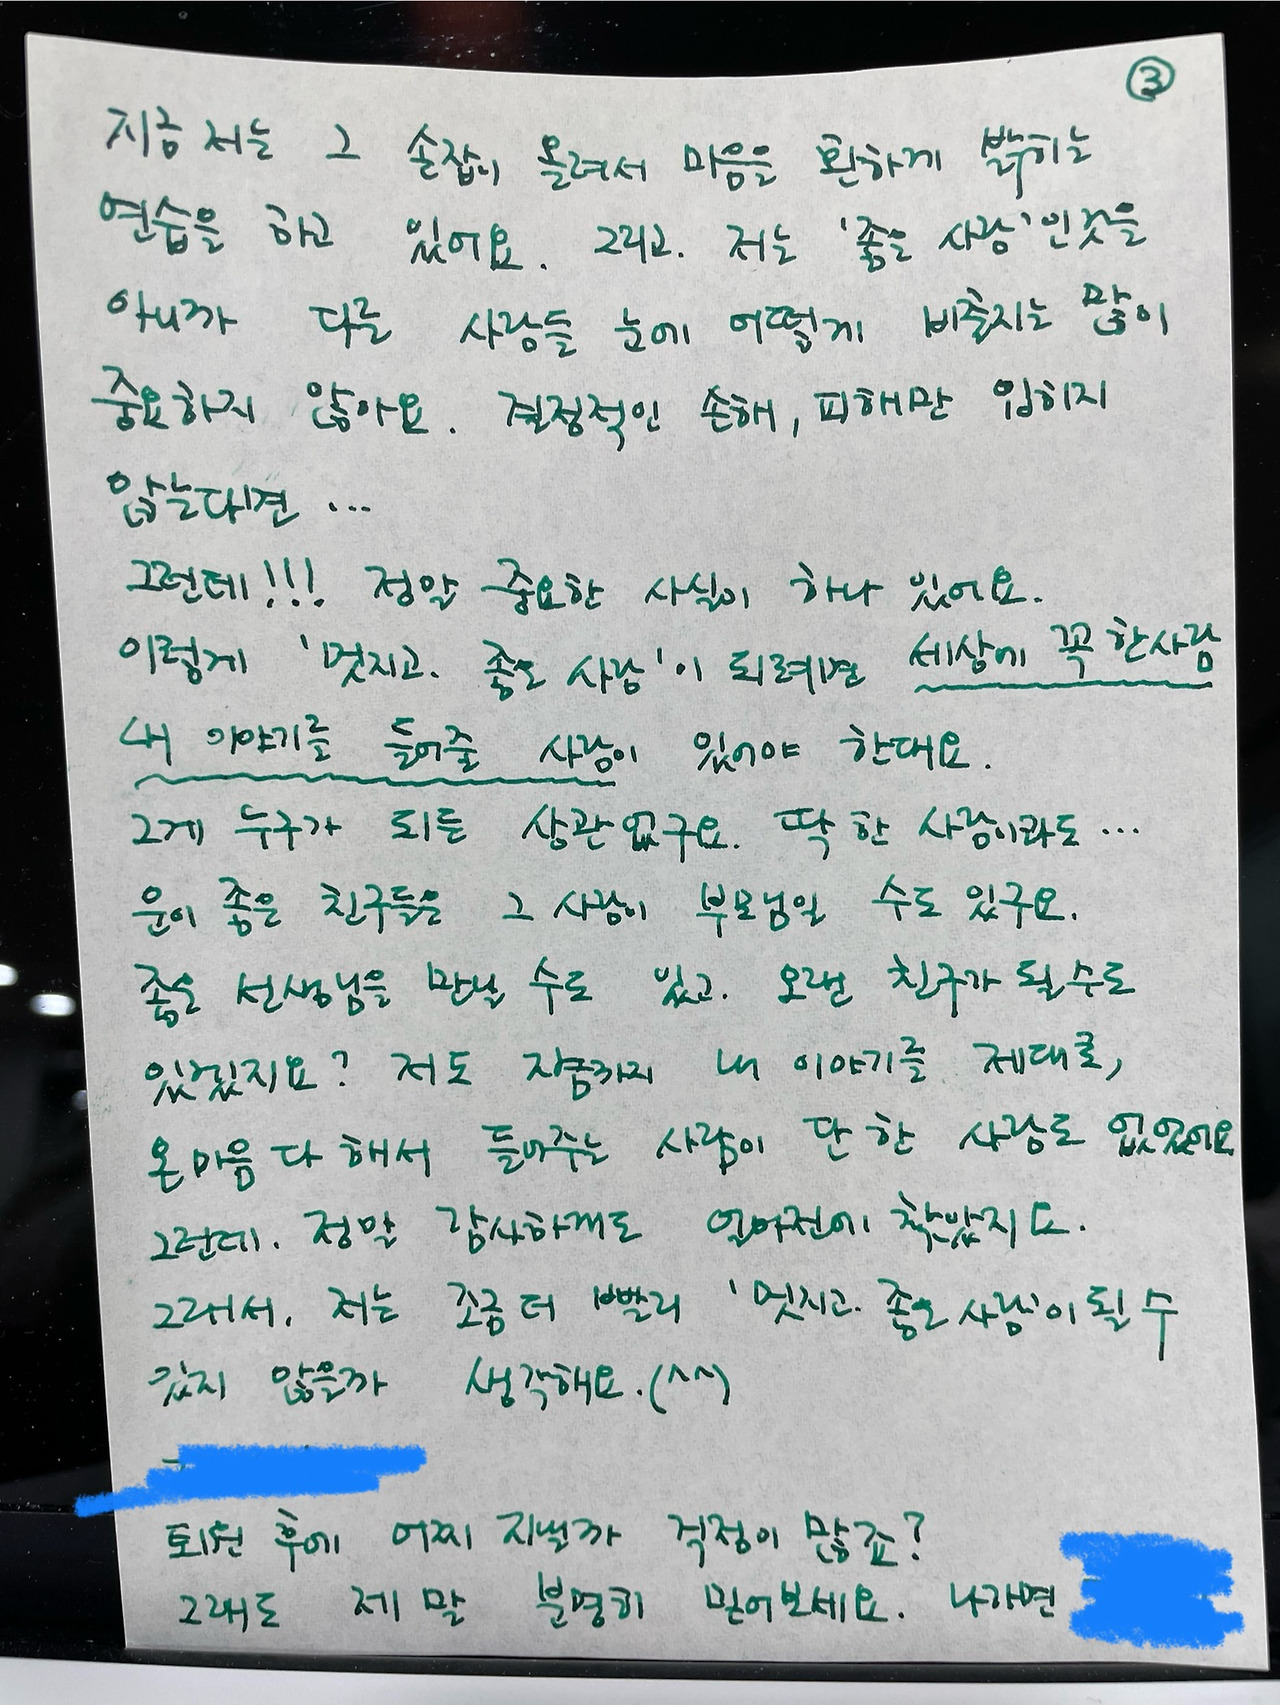 ③
지금 저는 그 손잡이 올려서 마음을 환하게 밝히는
연습을 하고 있어요. 그리고. 저는 '좋은 사람'인것을
아니까 다른 사람들 눈에 어떻게 비춰지는 많이
중요하지 않아요. 결정적인 손해, 피해만 입히지
않는다면 ...
그런데!!! 정말 중요한 사실이 하나 있어요.
이렇게 '멋지고. 좋은 사람'이 되려면 세상에 꼭 한사람
내 이야기를 들어줄 사람이 있어야 한대요.
그게 누구가 되든 상관없구요. 딱 한 사람이라도 ...
운이 좋은 친구들은 그 사람이 부모님일 수도 있구요.
좋은 선생님을 만날 수도 있고. 오랜 친구가 될수도
있겠지요? 저도 지금까지 내 이야기를 제대로,
온마음 다 해서 들어주는 사람이 단 한 사람도 없었어요
그런데. 정말 감사하게도 얼마전에 찾았지요.
그래서. 저는 조금 더 빨리 '멋지고. 좋은사람'이 될 수
있지 않을까 생각해요.(^^)
퇴원 후에 어찌 지낼까 걱정이 많죠?
그래도 제 말 분명히 믿어보세요. 나가면